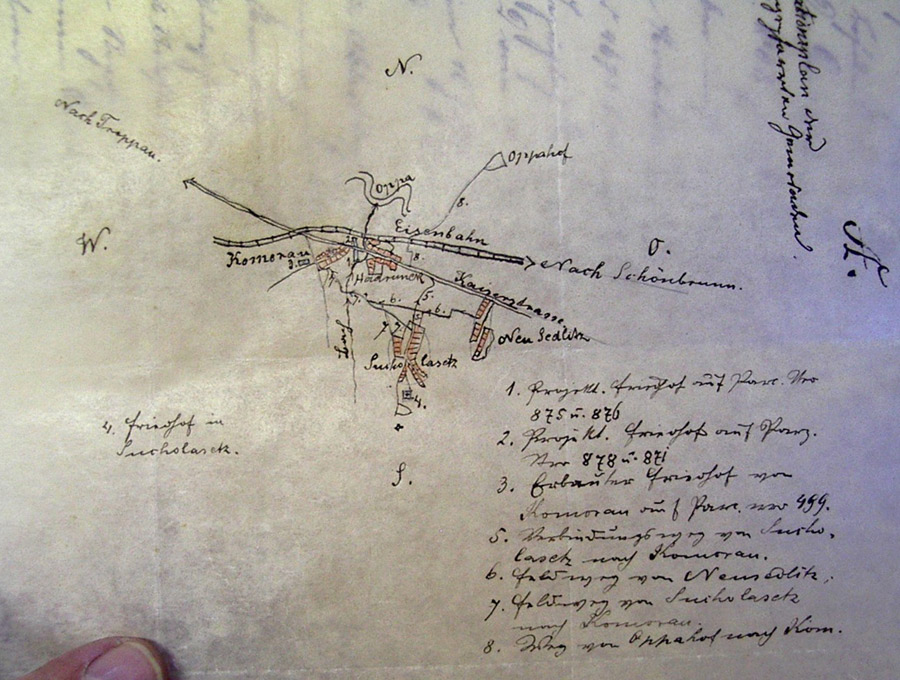 N.
Nach Troppau.
Oppahof
Oppa
8.
W.
Eisenbahn
O.
Komorau
3.
8.
Nach Schönbrunn.
Hadrunek
Kaiserstrasse
5.
6.
6.
7.
Neu Sedlitz
Sucholasetz
4.
S.
4. Friedhof in
Sucholasetz.
1. Projekt. Friedhof auf Parc. Nro
875 u. 876
2. Projekt. Friedhof auf Parz.
Nro 878 u. 871
3. Erbauter Friedhof von
Komorau auf Parc. nro 499.
5. Verbindungsweg von Sucho-
lasetz nach Komorau.
6. Feldweg von Neusedlitz,
7. Feldweg von Sucholasetz
nach Komorau.
8. Weg von Oppahof nach Kom.
Situationsplan der
Gemeinden